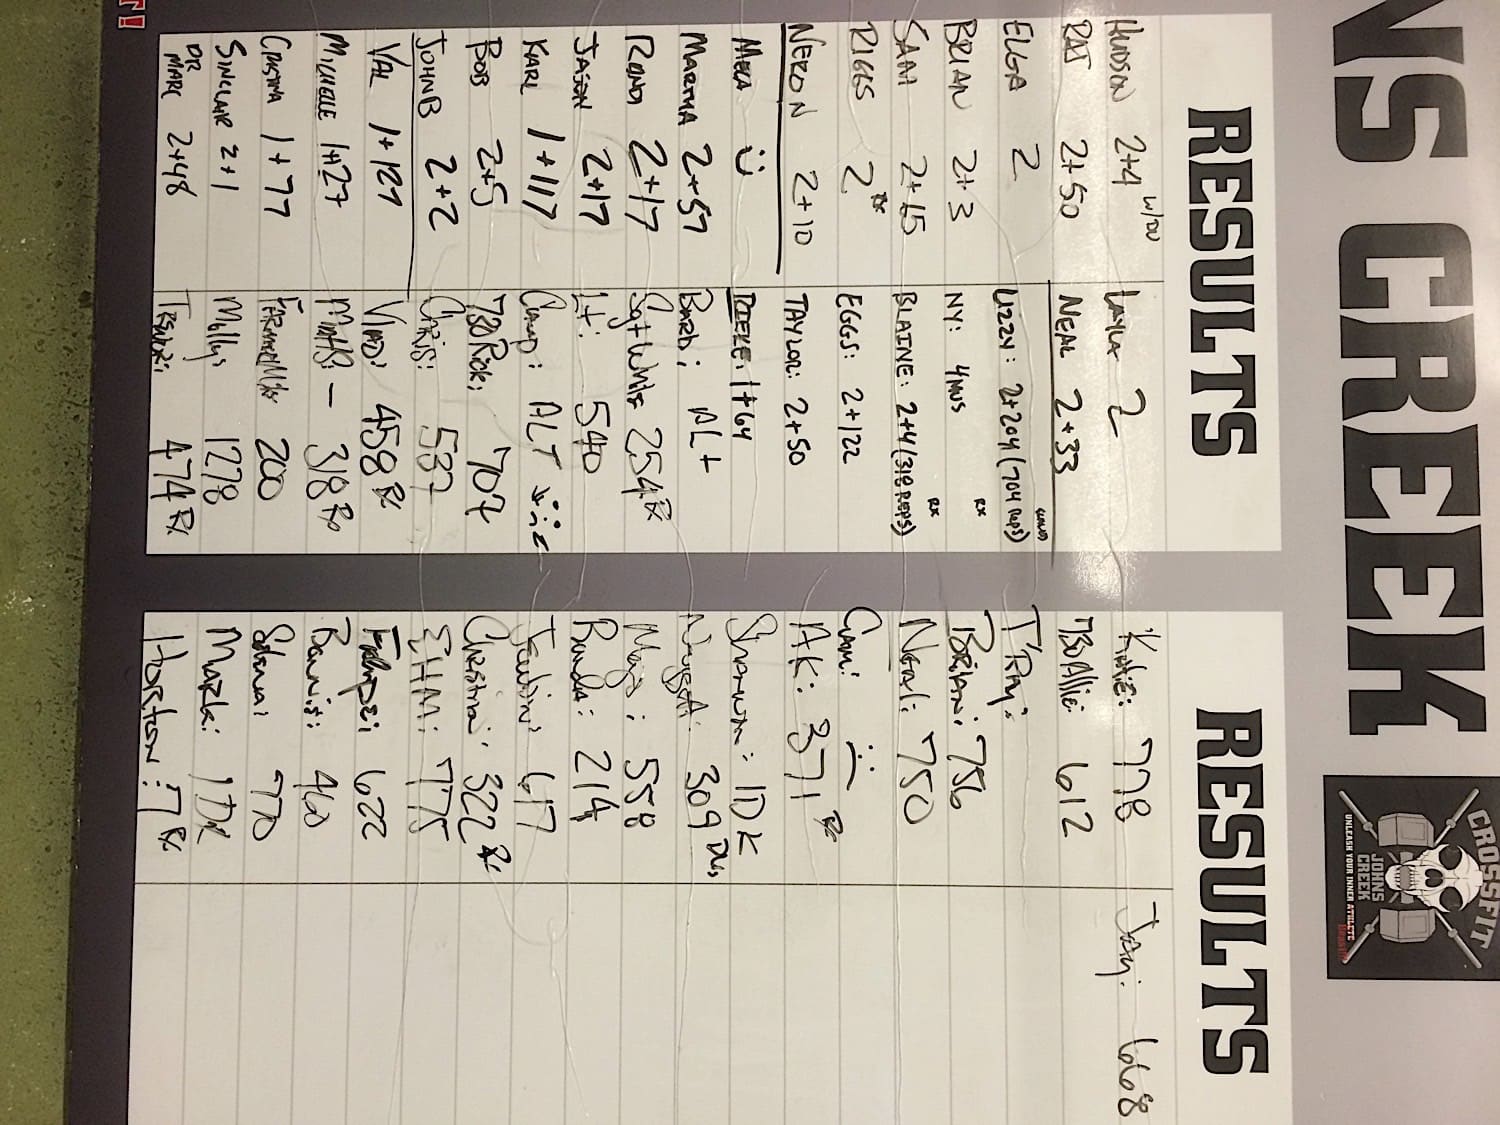 NS CREEK
CROSSFIT
JOHNS
CREEK
UNLEASH YOUR INNER ATHLETE
RESULTS
HUDSON 2+4 W/DU
RAJ 2+50
ELGA 2
BRIAN 2+3
SAM 2+15
RIGGS 2 RX
NERON 2+10
MECA
MARTHA 2+57
RONDA 2+17
JASON 2+17
KARL 1+117
BOB 2+5
JOHN B 2+2
VAL 1+127
MICHELLE 1+27
CRISTINA 1+77
SINCLAIR 2+1
DR MARC 2+48
LAYLA 2
NEAL 2+33
UZZY: 2+204 (704 reps)
NY: 4MNS RX
BLAINE: 2+4 (318 REPS) RX
EGGS: 2+122
TAYLOR: 2+50
1+64
Barb: ALt
Sgt White 254 Rx
Lt: 540
Camp: ALT
730 Rick: 707
Chris: 537
Vlad: 458 Rx
318 Rx
200
Mollys 1278
474 Rx
RESULTS
Katie: 778
730 Allie: 612
T'Ray:
Brian: 756
Neal: 750
Cam:
AK: 371 Rx
Shawn: IDK
Nugget: 309
Mays: 558
Banda: 214
617
Christina: 322 Rx
EHAM: 775
Felipe: 622
460
770
Mark: IDK
Horton: 7 Rx
Jay: 668